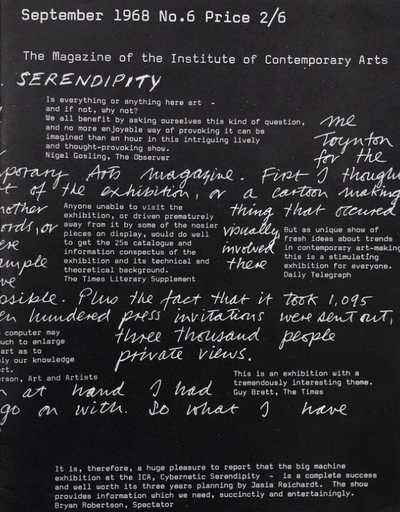 September 1968 No.6 Price 2/6
The Magazine of the Institute of Contemporary Arts
SERENDIPITY
Is everything or anything here art -
and if not, why not?
We all benefit by asking ourselves this kind of question,
and no more enjoyable way of provoking it can be
imagined than an hour in this intriguing lively
and thought-provoking show.
Nigel Gosling, The Observer
me
Toynton
for the
porary Arts magazine. First I though
t of the exhibition, or a cartoon making
nother
ords, or
ere
ample
ve
Anyone unable to visit the
exhibition, or driven prematurely
away from it by some of the nosier
pieces on display, would do well
to get the 25s catalogue and
information conspectus of the
exhibition and its technical and
theoretical background.
The Times Literary Supplement
thing that occured
visually
involved
there
But as unique show of
fresh ideas about trends
in contemporary art-making
this is a stimulating
exhibition for everyone.
Daily Telegraph
ossible. Plus the fact that it took 1,095
en hundered press invitations were sent out,
three thousand people
private views.
computer may
uch to enlarge
art as to
ly our knowledge
art.
erson, Art and Artists
This is an exhibition with a
tremendously interesting theme.
Guy Brett, The Times
n at hand I had
go on with. So what I have
It is, therefore, a huge pleasure to report that the big machine
exhibition at the ICA, Cybernetic Serendipity - is a complete success
and well worth its three years planning by Jasia Reichardt. The show
provides information which we need, succinctly and entertainingly.
Bryan Robertson, Spectator